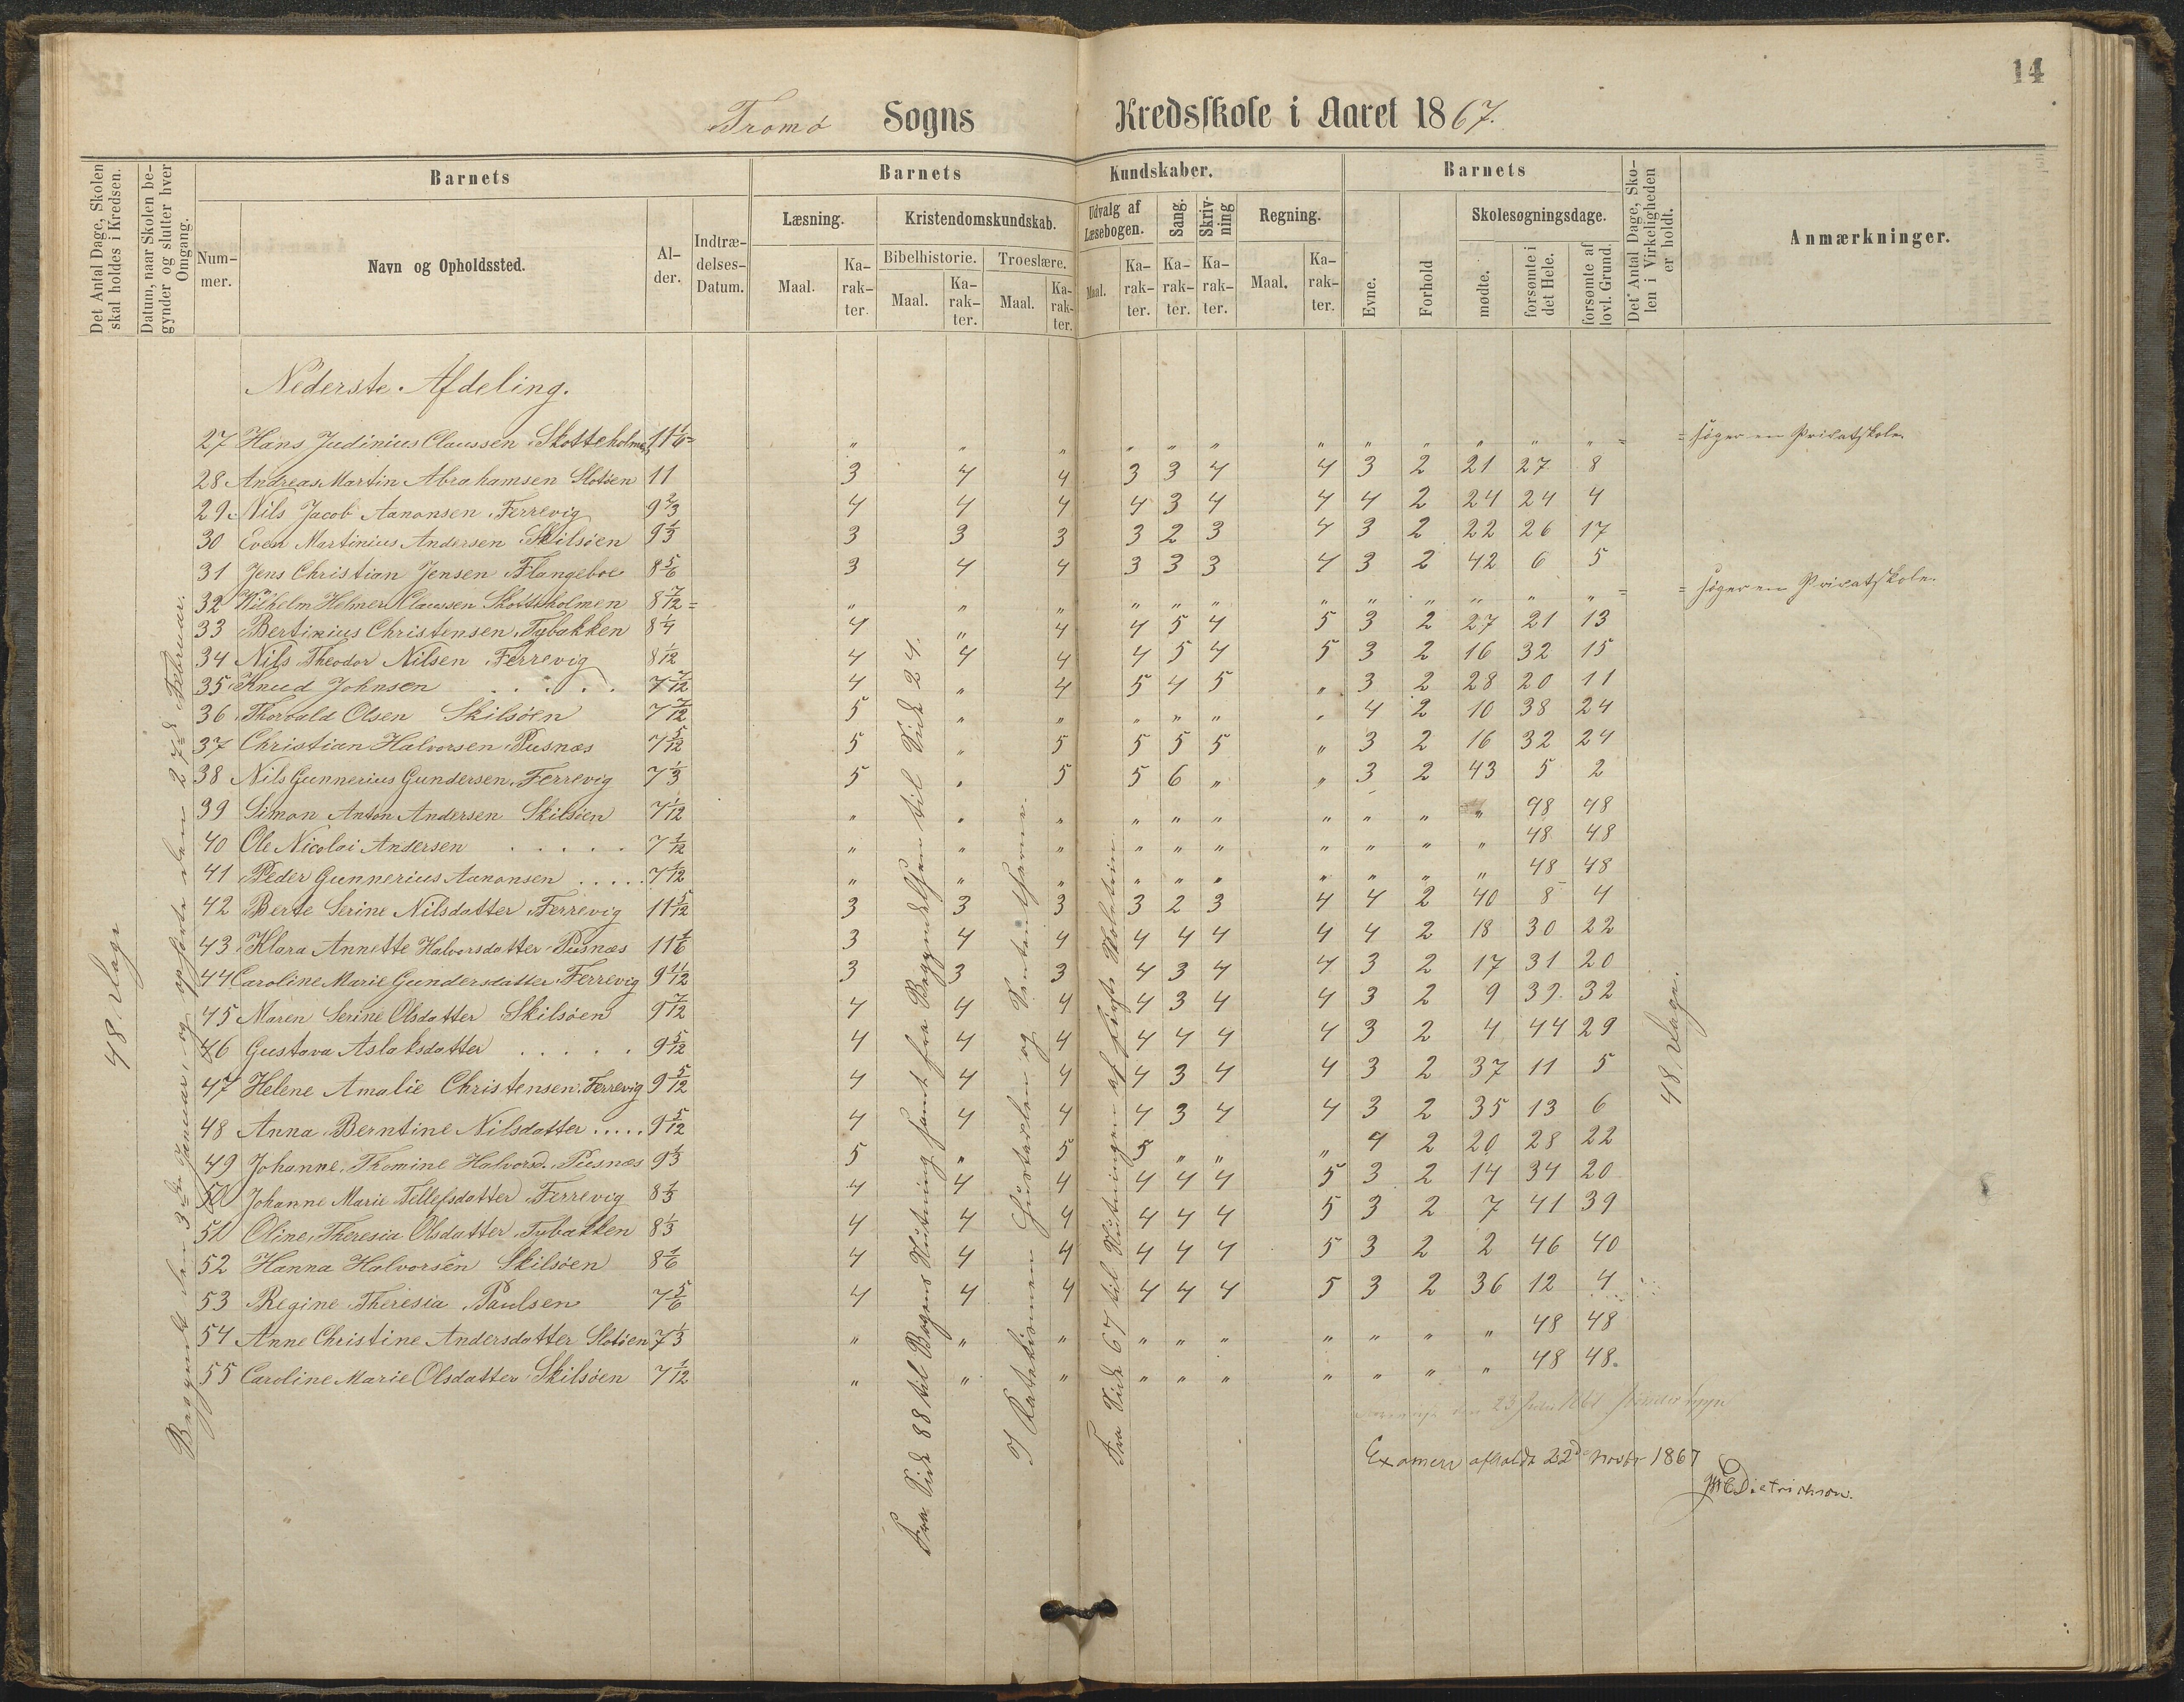 14
Tromö Sogns Kredsskole i Aaret 1867.
Det Antal Dage, Skolen skal holdes i Kredsen.
Datum, naar Skolen begynder og slutter hver Omgang.
Barnets
Nummer.
Navn og Opholdssted.
Alder.
Indtrædelses-Datum.
Barnets Kundskaber.
Læsning.
Maal.
Karakter.
Kristendomskundskab.
Bibelhistorie.
Maal.
Karakter.
Troeslære.
Maal.
Karakter.
Udvalg af Læsebogen.
Maal.
Karakter.
Sang.
Karakter.
Skrivning
Karakter.
Regning.
Maal.
Karakter.
Barnets
Evne.
Forhold
Skolesøgningsdage.
mødte.
forsømte i det Hele.
forsømte af lovl. Grund.
Det Antal Dage, Skolen i Virkeligheden er holdt.
Anmærkninger.
48 Dage
Begyndt den 3die Januar og ophørte den 27de Februar.
Nederste Afdeling.
27 Hans Judinius Claussen Skotteholmen 11 1/6 = „ „ „ „ „ „ „ „ „ „ „ „ = = søger en Privatskole.
28 Andreas Martin Abrahamsen Slotöen 11 3 4 4 3 3 4 4 3 2 21 27 8
29 Nils Jacob Aanonsen Færrevig 9 2/3 4 4 4 4 3 4 4 4 2 24 24 4
30 Even Martinius Andersen Skilsöen 9 1/3 3 3 3 3 2 3 4 3 2 22 26 17
31 Jens Christian Jensen Flangeboe 8 5/6 3 4 4 3 3 3 4 3 2 42 6 5
32 Wilhelm Helmer Claussen Skotteholmen 8 7/12 = „ „ „ „ „ „ „ „ „ „ „ „ = = søger en Privatskole.
33 Bertinius Christensen Tybakken 8 1/4 4 „ 4 4 5 4 5 3 2 27 21 13
34 Nils Theodor Nilsen Ferrevig 8 1/12 4 4 4 4 5 4 5 3 2 16 32 15
35 Knud Johnsen . . . . . 7 7/12 4 „ 4 5 4 5 „ 3 2 28 20 11
36 Thorvald Olsen Skilsöen 7 7/12 5 „ „ „ „ „ „ 4 2 10 38 24
37 Christian Halvorsen Pusnæs 7 5/12 5 „ 5 5 5 5 „ 3 2 16 32 24
38 Nils Gunnerius Gundersen Ferrevig 7 1/3 5 „ 5 5 6 „ „ 3 2 43 5 2
39 Simon Anton Andersen Skilsöen 7 1/12 „ „ „ „ „ „ „ „ „ „ 48 48
40 Ole Nicolai Andersen . . . . . 7 1/12 „ „ „ „ „ „ „ „ „ „ 48 48
41 Peder Gunnerius Aanonsen . . . . . 7 1/12 „ „ „ „ „ „ „ „ „ „ 48 48
42 Berte Serine Nilsdatter Ferrevig 11 5/12 3 3 3 3 2 3 4 4 2 40 8 4
43 Klara Annette Halvorsdatter Pusnæs 11 1/6 3 4 4 4 4 4 4 4 2 18 30 22
44 Caroline Marie Gundersdatter Ferrevig 9 11/12 3 3 3 4 3 4 4 3 2 17 31 20
45 Maren Serine Olsdatter Skilsöen 9 7/12 4 4 4 4 3 4 4 3 2 9 39. 32
46 Gustava Aslaksdatter . . . . . 9 5/12 4 4 4 4 4 4 4 3 2 4 44 29
47 Helene Amalie Christensen Ferrevig 9 5/12 4 4 4 4 3 4 4 3 2 37 11 5
48 Anna Berntine Nilsdatter . . . . . 9 5/12 4 4 4 4 3 4 4 3 2 35 13 6
49 Johanne Thomine Halvorsd. Pusnæs 9 1/3 5 „ 5 5 „ „ „ 4 2 20 28 22
50 Johanne Marie Tellefsdatter Ferrevig 8 1/3 4 4 4 4 4 4 5 3 2 14 34 20
51 Oline Theresia Olsdatter Tybakken 8 1/3 4 4 4 4 4 4 5 3 2 7 41 39
52 Hanna Halvorsen Skilsöen 8 1/6 4 4 4 4 4 4 5 3 2 2 46 40
53 Regine Theresia Paulsen 7 5/6 4 4 4 4 4 4 5 3 2 36 12 4
54 Anne Christine Andersdatter Slotöen 7 1/3 „ „ „ „ „ „ „ „ „ „ 48 48
55 Caroline Marie Olsdatter Skilsöen 7 1/12 „ „ „ „ „ „ „ „ „ „ 48 48.
Fra Side 88 til Bogens Slutning samt fra Begyndelsen til Side 24.
I Katekismen Hustavlen og
Fra Side 67 til Slutningen af
48 Dage.
Examen afholdt 22de Novbr 1867
Dietrichson.